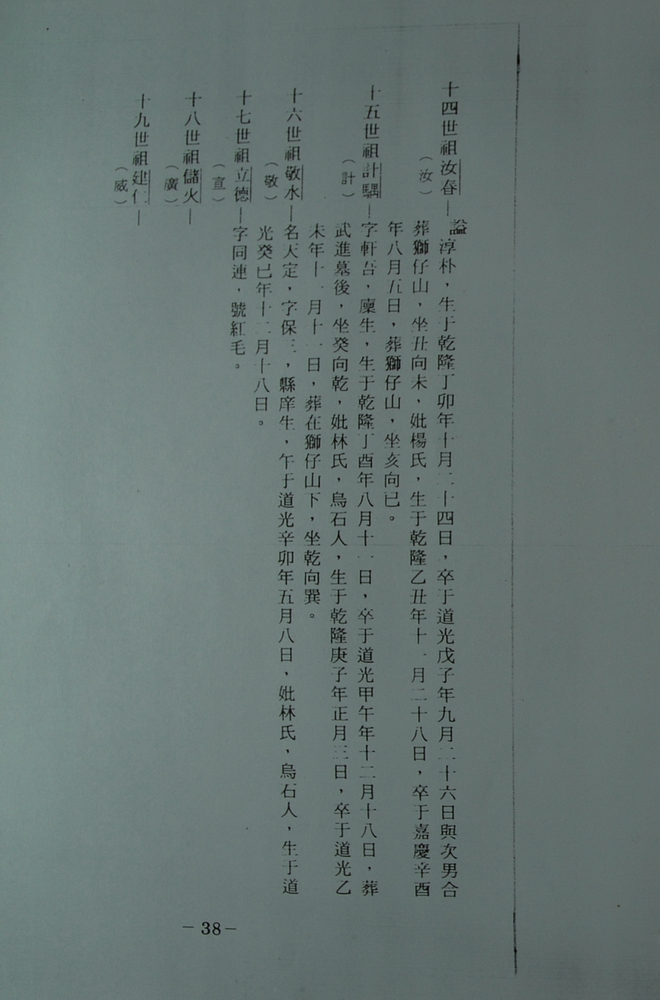 十四世祖汝春—諡淳朴，生于乾隆丁卯年十月二十四日，卒于道光戊子年九月二十六日與次男合
（汝）
葬獅仔山，坐丑向未，妣楊氏，生于乾隆乙丑年十一月二十八日，卒于嘉慶辛酉
年八月五日，葬獅仔山，坐亥向巳。
十五世祖計騳—字軒吾，廩生，生于乾隆丁酉年八月十一日，卒于道光甲午年十二月十八日，葬
（計）
武進墓後，坐癸向乾，妣林氏，烏石人，生于乾隆庚子年正月三日，卒于道光乙
未年十一月十一日，葬在獅仔山下，坐乾向巽。
十六世祖敬水—名天定，字保三，縣庠生，午于道光辛卯年五月八日，妣林氏，烏石人，生于道
（敬）
光癸巳年十二月十八日。
十七世祖立德—字同連，號紅毛。
（宣）
十八世祖儲火—
（廣）
十九世祖建仁—
（威）
－38－